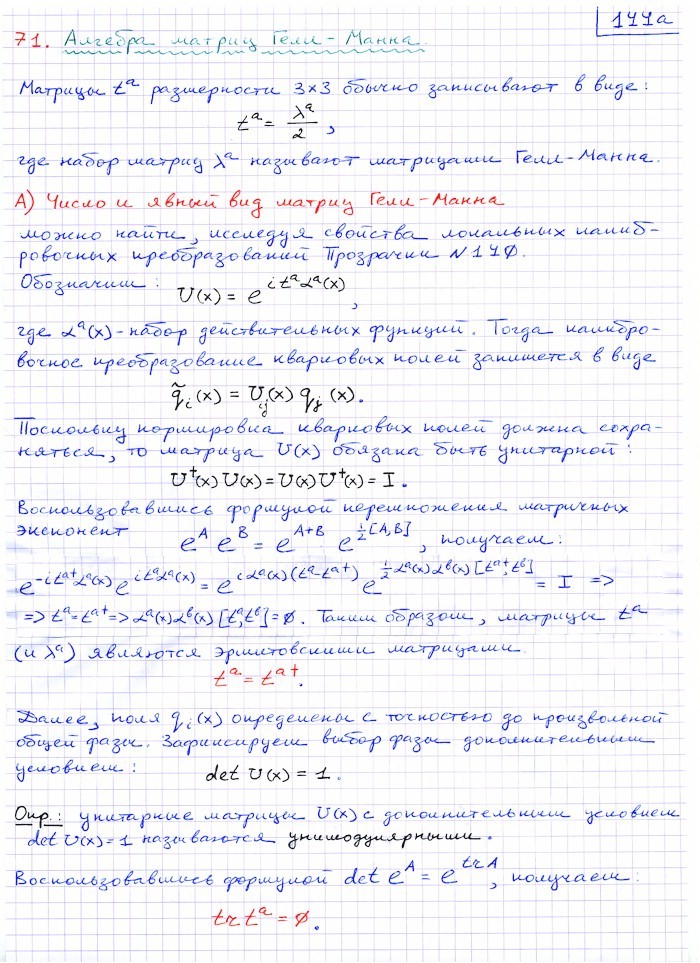 177а
71. Алгебра матриц Гелл-Манна.
Матрицы tᵃ размерности 3×3 обычно записывают в виде:
tᵃ = λᵃ/2 ,
где набор матриц λᵃ называют матрицами Гелл-Манна.
А) Число и явный вид матриц Гелл-Манна
можно найти, исследуя свойства локальных калиб-
ровочных преобразований Прозрачки N170.
Обозначим: U(x) = e^{i tᵃ αᵃ(x)},
где αᵃ(x) - набор действительных функций. Тогда калибро-
вочное преобразование кварковых полей запишется в виде
q̃ᵢ(x) = Uᵢⱼ(x) qⱼ(x).
Поскольку нормировка кварковых полей должна сохра-
няться, то матрица U(x) обязана быть унитарной:
U†(x)U(x) = U(x)U†(x) = I.
Воспользовавшись формулой перемножения матричных
экспонент e^A e^B = e^{A+B} e^{½[A,B]}, получаем:
e^{-i tᵃ†αᵃ(x)} e^{i tᵃαᵃ(x)} = e^{iαᵃ(x)(tᵃ-tᵃ†)} e^{½αᵃ(x)αᵇ(x)[tᵃ†,tᵇ]} = I =>
=> tᵃ = tᵃ† => αᵃ(x)αᵇ(x)[tᵃ,tᵇ] = 0. Таким образом, матрицы tᵃ
(и λᵃ) являются эрмитовскими матрицами.
tᵃ = tᵃ†.
Далее, поля qᵢ(x) определены с точностью до произвольной
общей фазы. Зафиксируем выбор фазы дополнительным
условием: det U(x) = 1.
Опр.: унитарные матрицы U(x) с дополнительным условием
det U(x)=1 называются унимодулярными.
Воспользовавшись формулой det e^A = e^{tr A}, получаем:
tr tᵃ = 0.